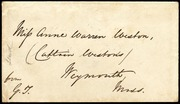 Miss Anne Warren Weston,
(Captain Weston's)
Weymouth,
Mass.
from
G.T.